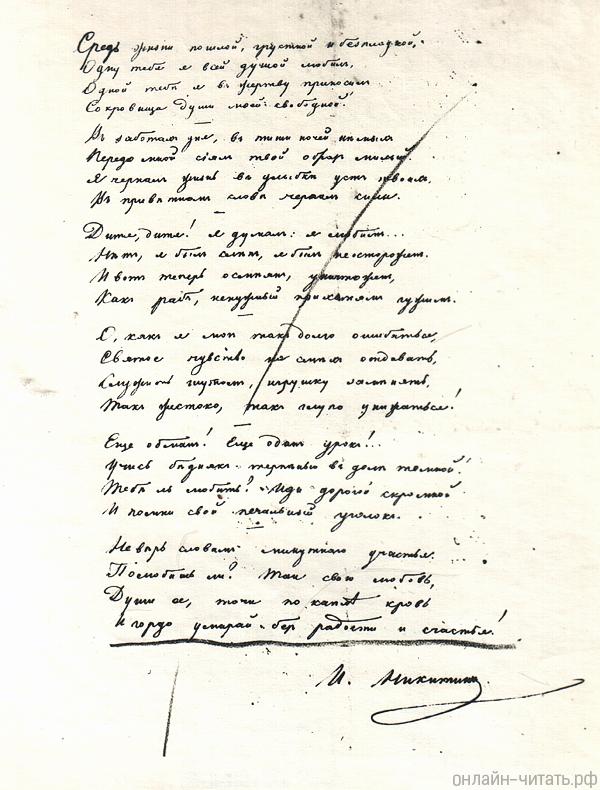 Средь жизни пошлой, грустной и безплодной,
Одну тебя я всей душой любилъ,
Одной тебѣ я въ жертву приносилъ
Сокровища души моей свободной.
Въ заботахъ дня, въ тиши ночей нѣмыхъ
Передо мной сіялъ твой образъ милый.
Я черпалъ жизнь въ улыбкѣ устъ твоихъ,
Въ привѣтныхъ словахъ черпалъ силы.
Дитя, дитя! Я думалъ: я любимъ...
Нѣтъ, я былъ слѣпъ, я былъ неостороженъ.
И вотъ теперь осмѣянъ, уничтоженъ,
Какъ рабъ, ненужный прихотямъ чужимъ.
О, какъ я могъ такъ долго ошибаться,
Святое чувство на смѣхъ отдавать,
Служить, игрушку замѣнять,
Такъ жестоко, такъ глупо унижаться!
Еще обманъ! Еще одинъ урокъ!..
Учись бѣднякъ терпѣнью въ долѣ темной!
Тебѣ ль любить? Иди дорогой скромной
И помни свой печальный уголокъ.
Не вѣрь словамъ минутнаго участья.
Полюбишь ли? Таи свою любовь,
Души ее, точи по каплѣ кровь
И гордо умирай безъ радости и счастья!
И. Никитинъ
онлайн-читать.рф